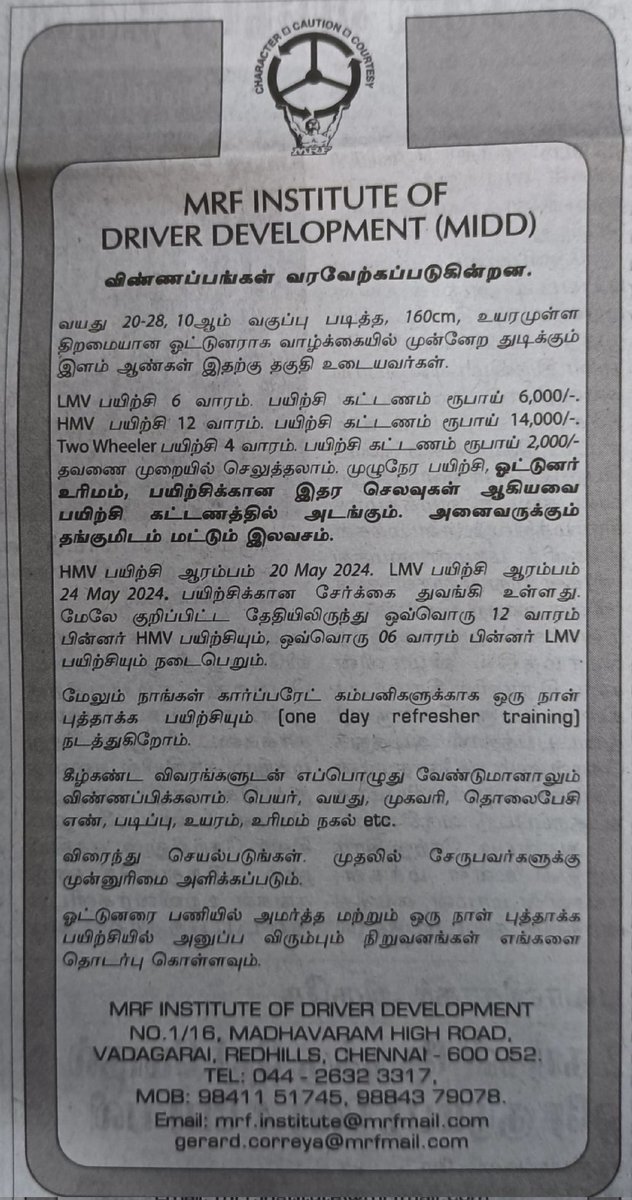 CHARACTER □ CAUTION □ COURTESY
MRF
MRF INSTITUTE OF
DRIVER DEVELOPMENT (MIDD)
விண்ணப்பங்கள் வரவேற்கப்படுகின்றன.
வயது 20-28, 10ஆம் வகுப்பு படித்த, 160cm, உயரமுள்ள
திறமையான ஓட்டுனராக வாழ்க்கையில் முன்னேற துடிக்கும்
இளம் ஆண்கள் இதற்கு தகுதி உடையவர்கள்.
LMV பயிற்சி 6 வாரம். பயிற்சி கட்டணம் ரூபாய் 6,000/-.
HMV பயிற்சி 12 வாரம். பயிற்சி கட்டணம் ரூபாய் 14,000/-.
Two Wheeler பயிற்சி 4 வாரம். பயிற்சி கட்டணம் ரூபாய் 2,000/-
தவணை முறையில் செலுத்தலாம். முழுநேர பயிற்சி, ஓட்டுனர்
உரிமம், பயிற்சிக்கான இதர செலவுகள் ஆகியவை
பயிற்சி கட்டணத்தில் அடங்கும். அனைவருக்கும்
தங்குமிடம் மட்டும் இலவசம்.
HMV பயிற்சி ஆரம்பம் 20 May 2024. LMV பயிற்சி ஆரம்பம்
24 May 2024. பயிற்சிக்கான சேர்க்கை துவங்கி உள்ளது.
மேலே குறிப்பிட்ட தேதியிலிருந்து ஒவ்வொரு 12 வாரம்
பின்னர் HMV பயிற்சியும், ஒவ்வொரு 06 வாரம் பின்னர் LMV
பயிற்சியும் நடைபெறும்.
மேலும் நாங்கள் கார்ப்பரேட் கம்பனிகளுக்காக ஒரு நாள்
புத்தாக்க பயிற்சியும் (one day refresher training)
நடத்துகிறோம்.
கீழ்கண்ட விவரங்களுடன் எப்பொழுது வேண்டுமானாலும்
விண்ணப்பிக்கலாம். பெயர், வயது, முகவரி, தொலைபேசி
எண், படிப்பு, உயரம், உரிமம் நகல் etc.
விரைந்து செயல்படுங்கள். முதலில் சேருபவர்களுக்கு
முன்னுரிமை அளிக்கப்படும்.
ஓட்டுனரை பணியில் அமர்த்த மற்றும் ஒரு நாள் புத்தாக்க
பயிற்சியில் அனுப்ப விரும்பும் நிறுவனங்கள் எங்களை
தொடர்பு கொள்ளவும்.
MRF INSTITUTE OF DRIVER DEVELOPMENT
NO.1/16, MADHAVARAM HIGH ROAD,
VADAGARAI, REDHILLS, CHENNAI - 600 052.
TEL: 044 - 2632 3317,
MOB: 98411 51745, 98843 79078.
Email: mrf.institute@mrfmail.com
gerard.correya@mrfmail.com